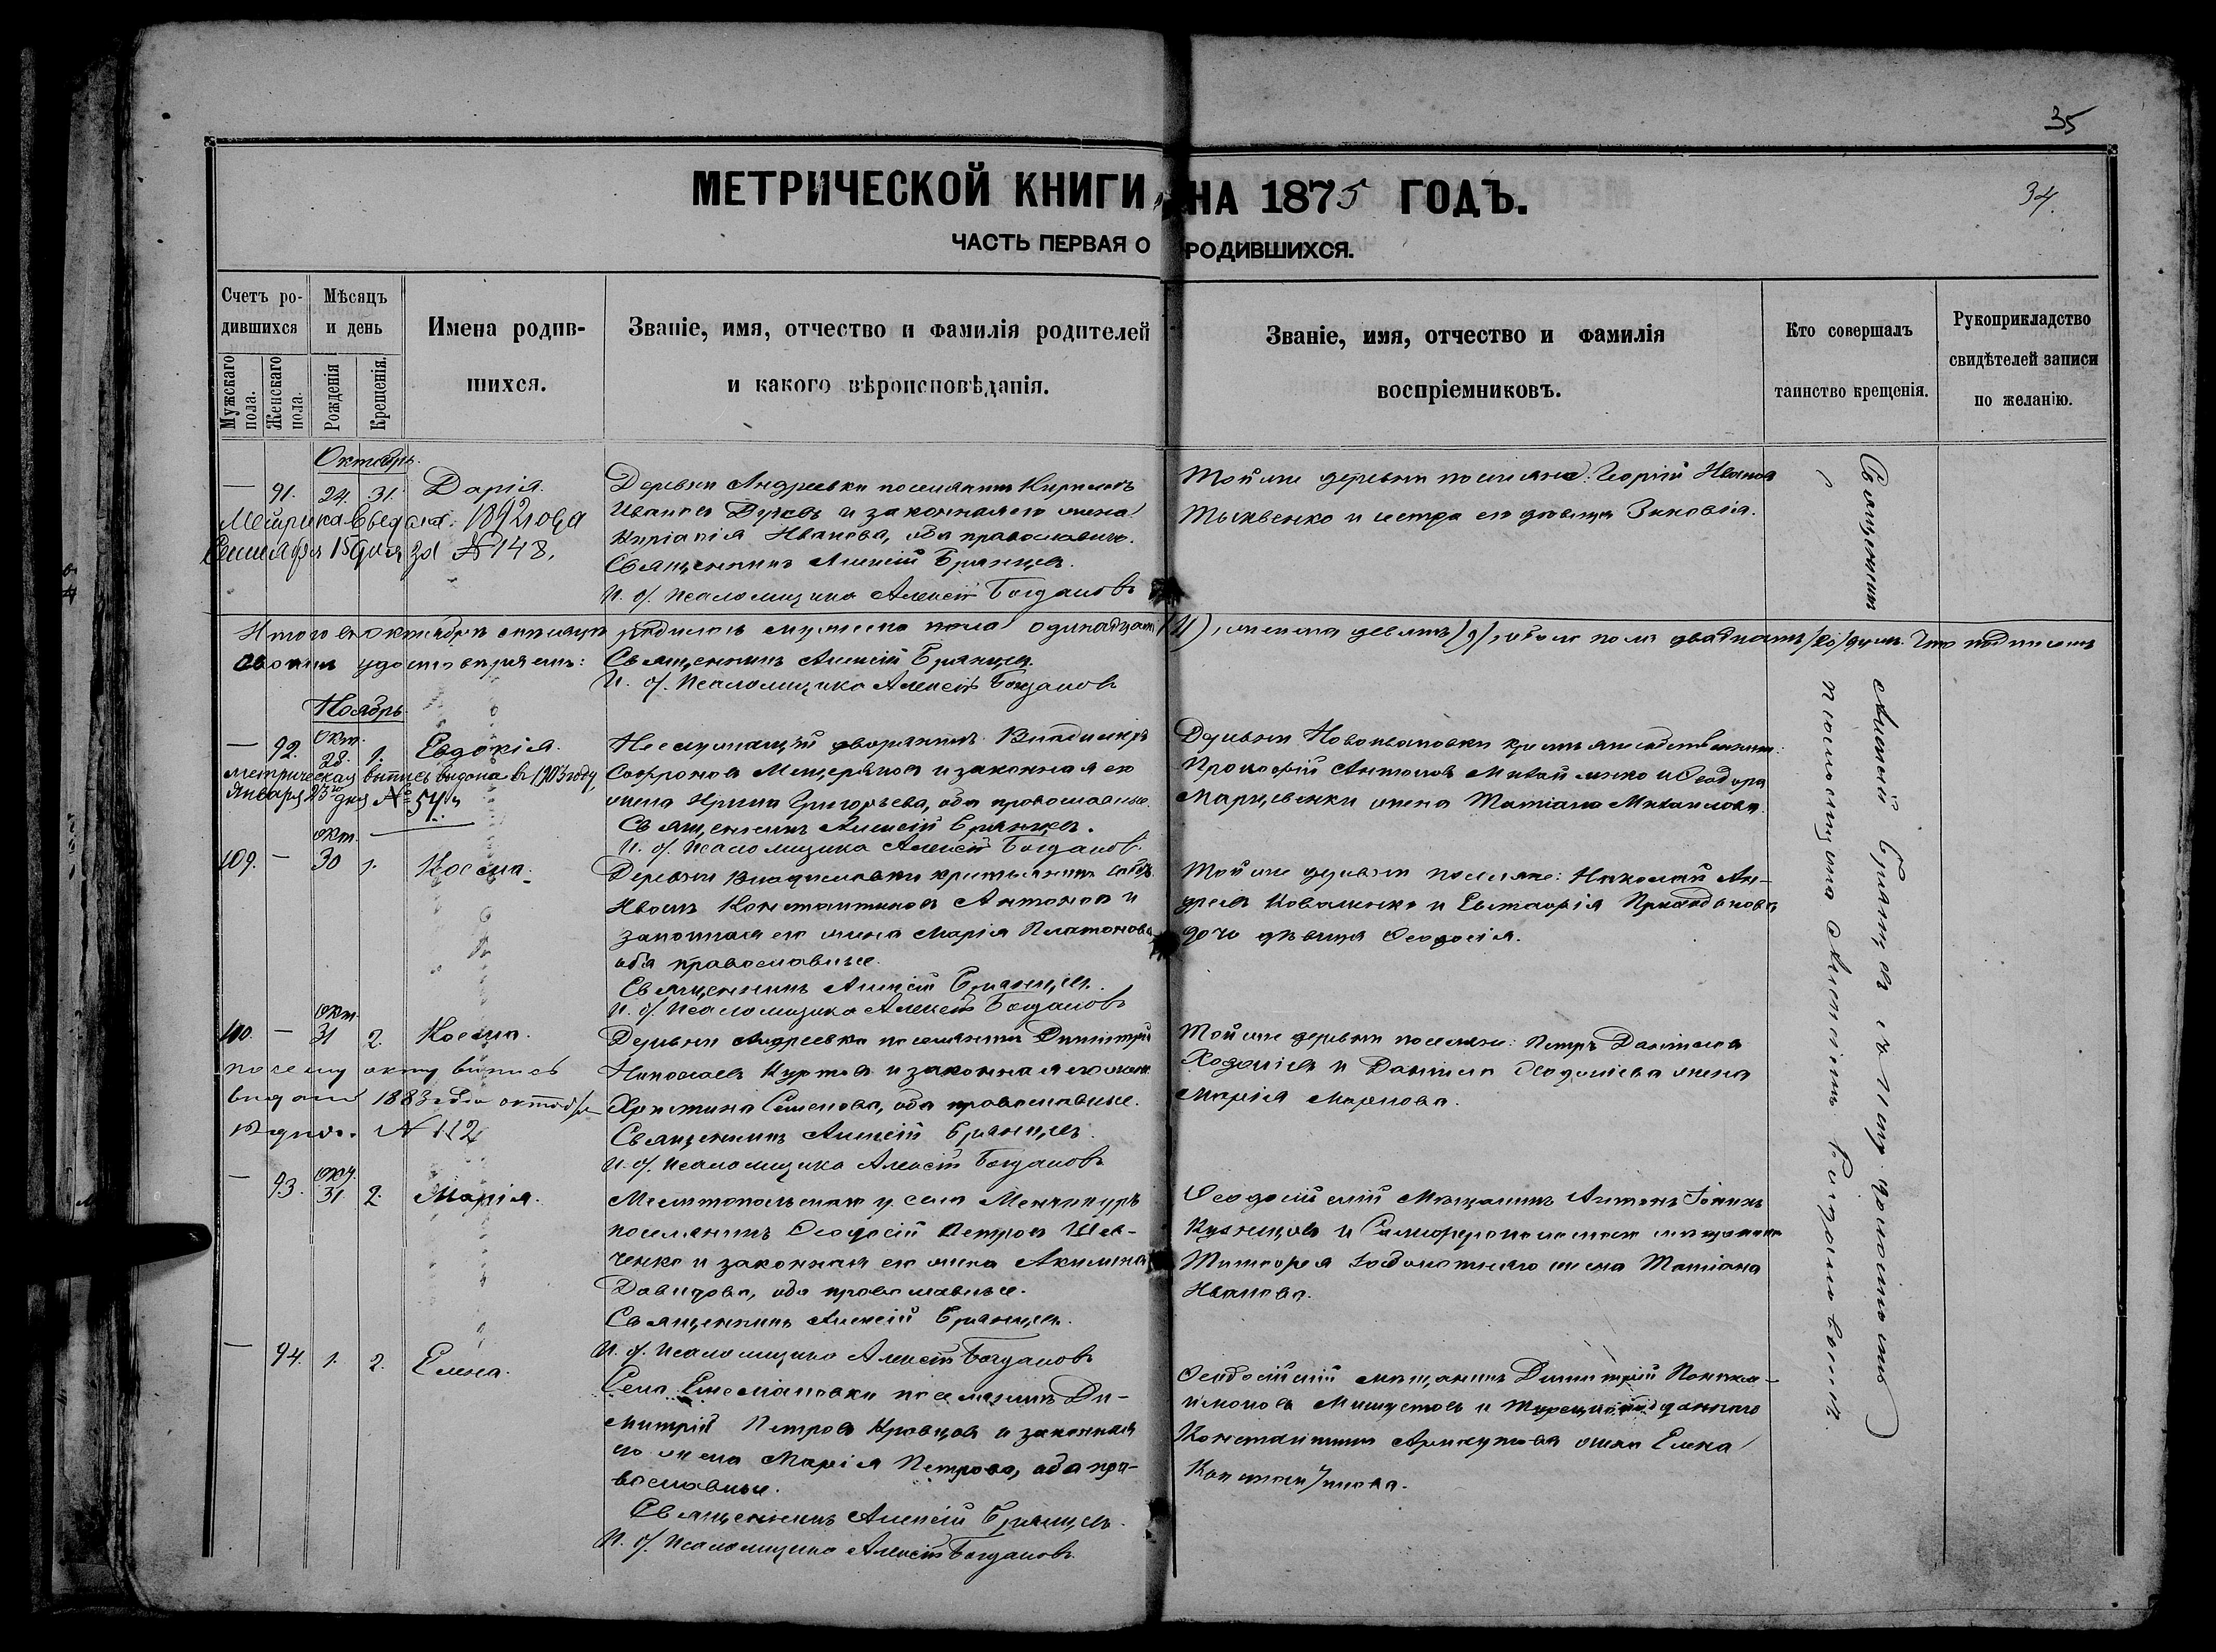 35
МЕТРИЧЕСКОЙ КНИГИ, НА 1875 ГОДЪ.
34.
ЧАСТЬ ПЕРВАЯ О РОДИВШИХСЯ.
Счетъ родившихся
Мужскаго пола.
Женскаго пола.
Мѣсяцъ и день
Рожденія
Крещенія.
Имена родившихся.
Званіе, имя, отчество и фамилія родителей
и какого вѣроисповѣданія.
Званіе, имя, отчество и фамилія
воспріемниковъ.
Кто совершалъ
таинство крещенія.
Рукоприкладство
свидѣтелей записи
по желанію.
Октябрь.
— 91. 24. 31. Дарія.
Метрика выдана 1892 года
15 дня за № 148.
Деревни Андреевки поселянинъ Кириллъ
Ивановъ и законная его жена
Иванова, оба православные.
Священникъ Алексій Брянцевъ.
И. д. Псаломщика Алексѣй Богдановъ
Той же деревни поселяне: Георгій Ивановъ
и сестра его дѣвица Зиновія.
Итого въ октябрѣ мѣсяцѣ родилось мужеска пола одинадцать (11), женска девять (9), обоего пола двадцать (20) душъ. Что подписомъ
своимъ удостовѣряемъ: Священникъ Алексій Брянцевъ.
И. д. Псаломщика Алексѣй Богдановъ
Ноябрь
— 92. окт. 28. 1. Евдокія.
метрическая выпись выдана въ 1903 году
Января 23го дня № 54.
Неслужащій дворянинъ Владиміръ
Софроновъ Мещеряковъ и законная его
жена Ирина Григорьева, оба православные.
Священникъ Алексій Брянцевъ.
И. д. Псаломщика Алексѣй Богдановъ.
Деревни Новоивановки
Прокофій Антоновъ Михайленко и Ѳеодора
Марцевенки жена Татіана Михаилова.
109. — окт. 30 1. Косма.
Деревни Владиславки
Константиновъ Антоновъ и
законная его жена Марія Платонова
оба православные.
Священникъ Алексій Брянцевъ.
И. д. Псаломщика Алексѣй Богдановъ
Той же деревни поселяне: Николай Андреевъ
Коваленко и
дочь дѣвица Ѳеодосія.
110. — окт. 31 2. Косма.
по сему акту выпись
выдана 1883 года октяб/ря
дня. № 112
Деревни Андреевки поселянинъ Димитрій
Николаевъ Куртевъ и законная его жена
Христина Семенова, оба православные.
Священникъ Алексій Брянцевъ.
И. д. Псаломщика Алексѣй Богдановъ
Той же деревни поселяне: Петръ Даниловъ
и Данила жена
Марія Маркова.
— 93. окт. 31. 2. Марія.
Мелитопольскаго у. села
поселянинъ Ѳеодосій Петровъ Шевченко
и законная его жена Акилина
Давидова, оба православные.
Священникъ Алексій Брянцевъ.
И. д. Псаломщика Алексѣй Богдановъ
Ѳеодосійскій Мѣщанинъ Антонъ
Кузнецовъ и Симферопольскаго мѣщанина
Тимоѳея жена Татіана
Иванова.
— 94. 1. 2. Елена.
Села поселянинъ Димитрій
Петровъ Кравцовъ и законная
его жена Марія Петрова, оба православные.
Священникъ Алексій Брянцевъ.
И. д. Псаломщика Алексѣй Богдановъ.
Ѳеодосійскій мѣщанинъ Димитрій
и Турецкоподданнаго
Константина жена Елена
Константинова.
Священникъ Алексій Брянцевъ съ и. д.
псаломщика Алексѣемъ Богдановымъ.